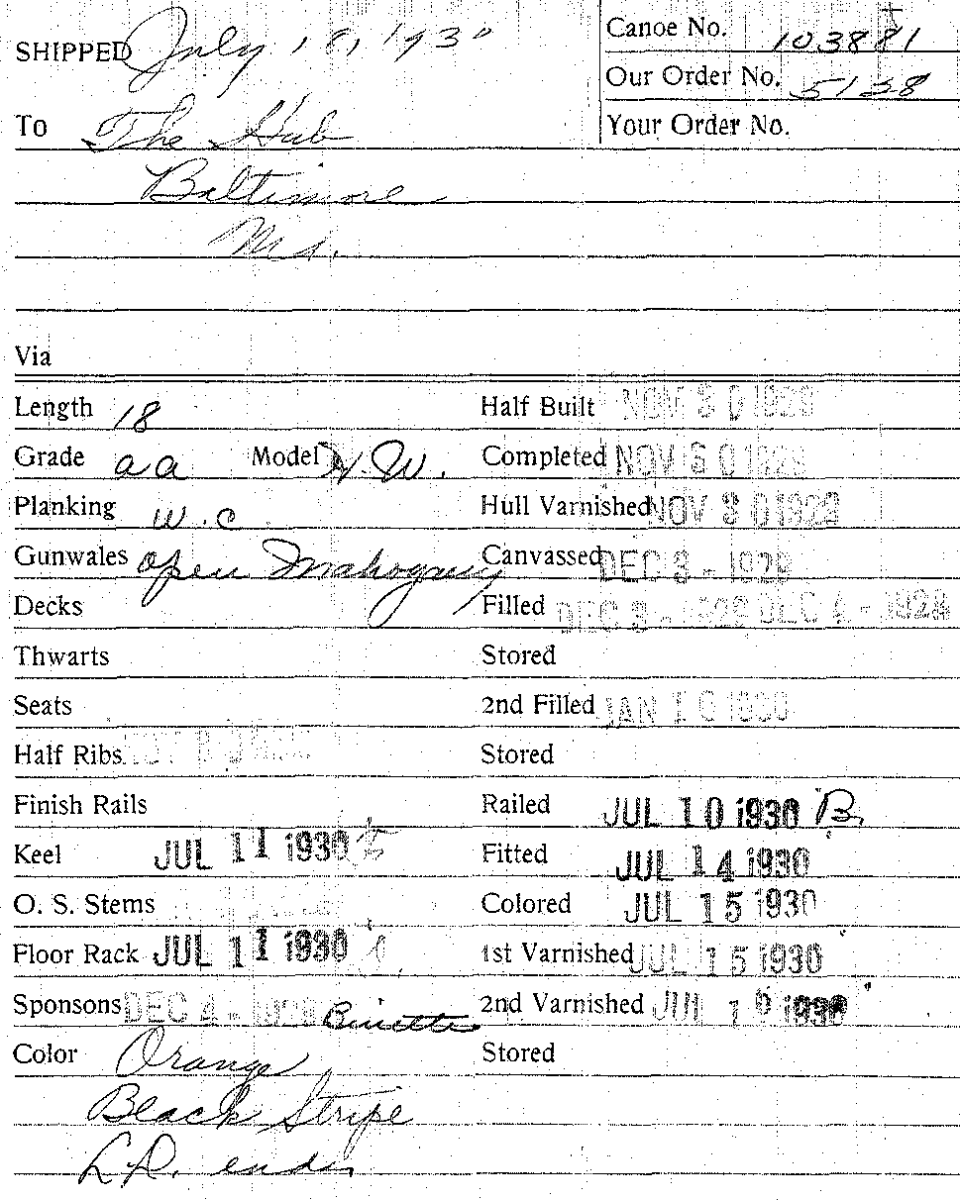 SHIPPED July 18, 1930
Canoe No. 103881
Our Order No. 5138
To The Hub
Your Order No.
Baltimore
Md.
Via
Length 18
Half Built NOV 30 1929
Grade aa Model H.W.
Completed NOV 30 1929
Planking w.c
Hull Varnished NOV 30 1929
Gunwales open Mahogany
Canvassed DEC 3 - 1929
Decks
Filled DEC 3 - 1929 DEC 4 - 1929
Thwarts
Stored
Seats
2nd Filled JAN 16 1930
Half Ribs
Stored
Finish Rails
Railed JUL 10 1930 B.
Keel JUL 11 1930
Fitted JUL 14 1930
O. S. Stems
Colored JUL 15 1930
Floor Rack JUL 11 1930
1st Varnished JUL 15 1930
Sponsons DEC 4 - 1929
2nd Varnished JUL 1 1930
Color Orange
Stored
Black Stripe
L.D. ends